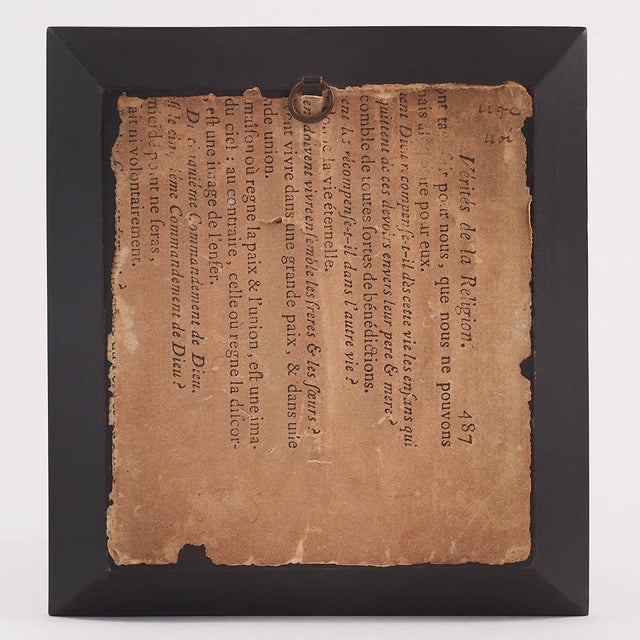 Vérités de la Religion. 487
ont pour nous, que nous ne pouvons
mais pour eux.
ment Dieu recompenſe-t-il dès cette vie les enfans qui
quittent de ces devoirs envers leur pere & mere ?
comble de toutes ſortes de bénédictions.
ent les récompenſe-t-il dans l'autre vie ?
la vie éternelle.
doivent vivre enſemble les freres & les ſœurs ?
vont vivre dans une grande paix, & dans une
de union.
maiſon où regne la paix & l'union, eſt une ima-
du ciel : au contraire, celle où regne la diſcor-
eſt une image de l'enfer.
Du cinquiéme Commandement de Dieu.
eſt le cinquiéme Commandement de Dieu ?
point ne ſeras,
ait ni volontairement.